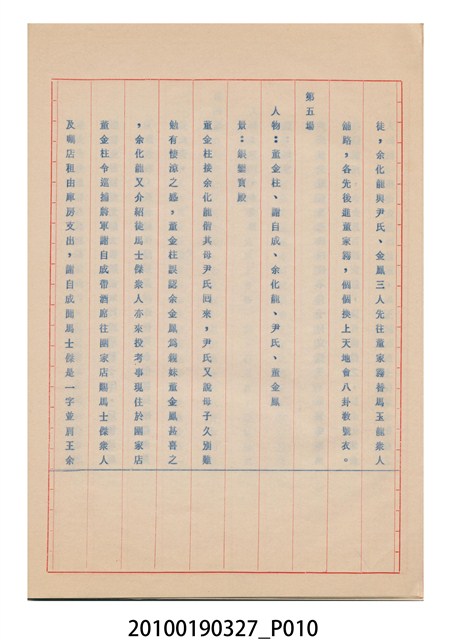 徒，余化龍與尹氏、金鳳三人先往董家壽替馬玉龍衆人
論路，各先後進董家壽，個個換上天地會八卦教號衣。
第五場
人物：董金柱、謝自成、余化龍、尹氏、董金鳳
景：銀鑾寶殿
董金柱接余化龍借其母尹氏回來，尹氏又說母子久別雖
勉有悽淚之感，董金柱誤認余金鳳爲親妹董金鳳甚喜之
，余化龍又介紹徒馬士傑衆人亦來投考事現住於團家店
董金柱令巡捕將軍謝自成帶酒席往團家店賜馬士傑衆人
及嘲店租由庫房支出，謝自成聞馬士傑是一字並肩王余
20100190327_P010